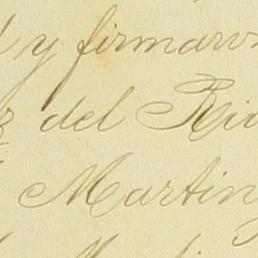 y firmaron
del Rio
Martin